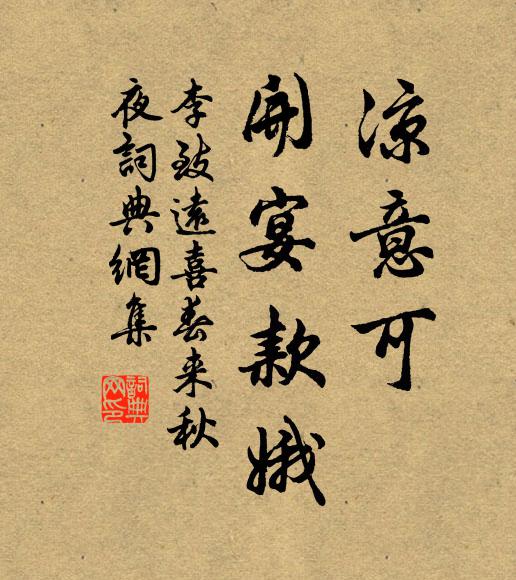 涼意可
開宴款娥
李致遠喜春来秋
夜詞典網集
詞典
网印